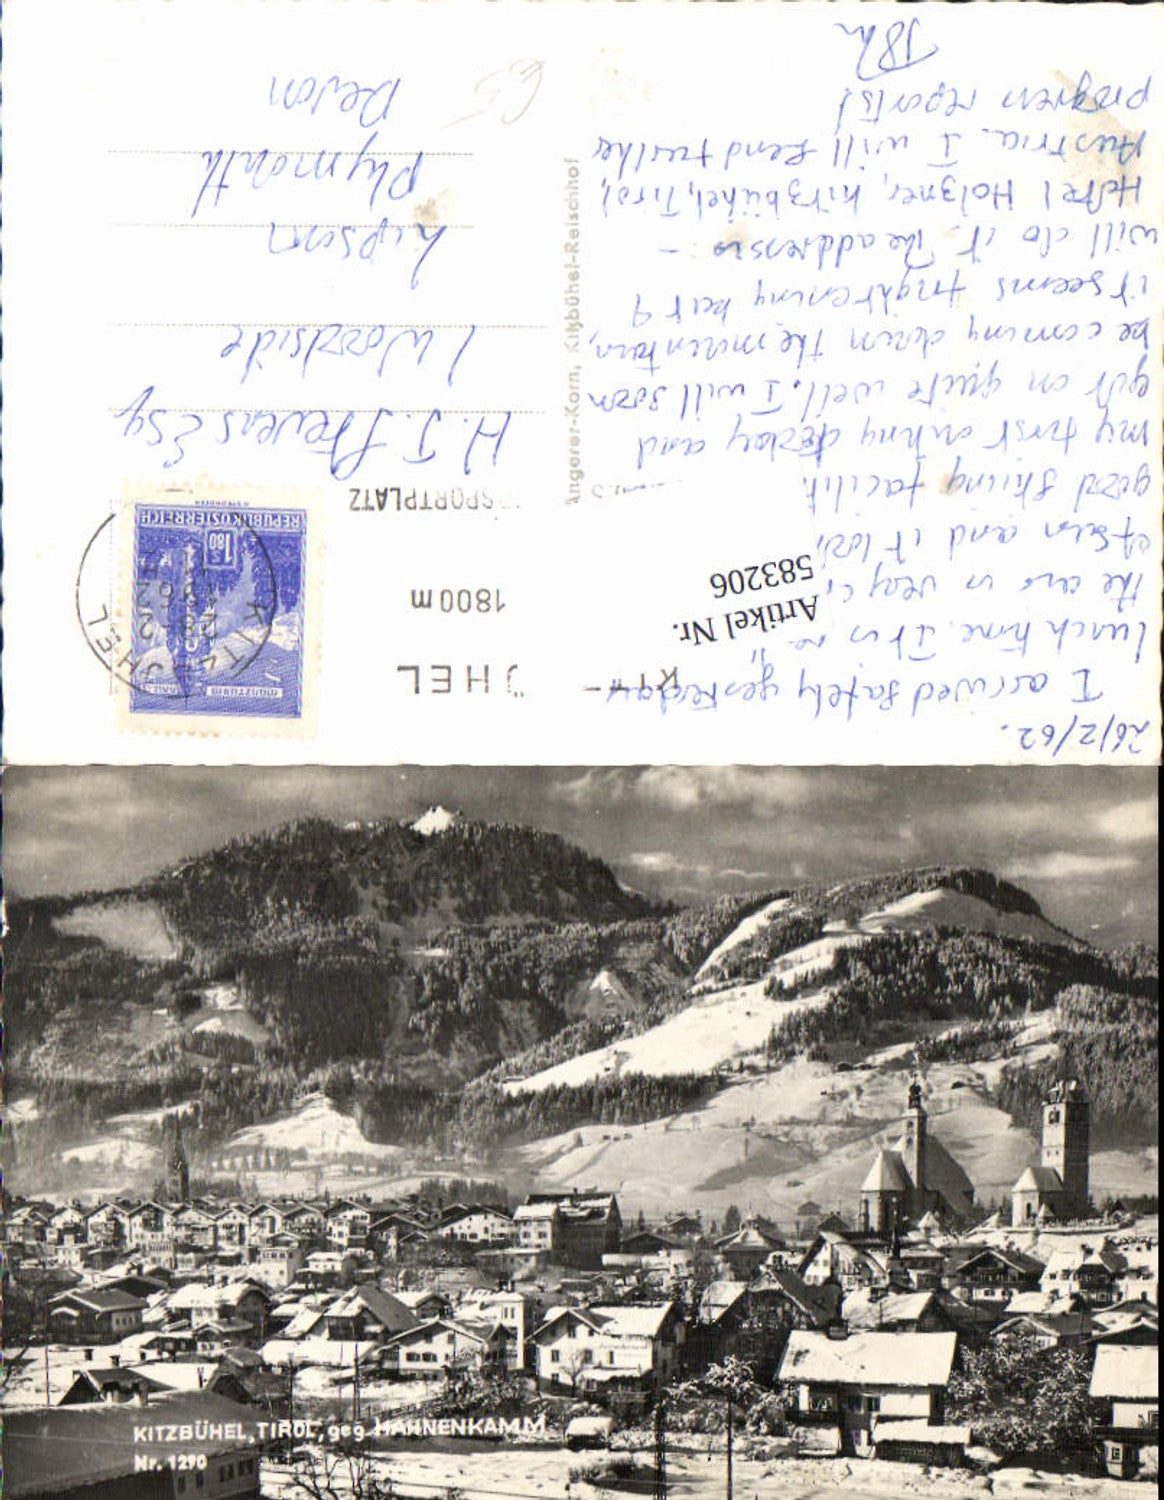 26/2/62.
I arrived safely yesterday
lunch time. It is
the area is very
and it
good skiing facilit
my first outing today and
got on quite well. I will soon
be coming down the mountain,
it seems frightening but I
will do it. The address is :-
Hotel Holzner, Kitzbühel, Tirol,
Austria. I will send further
progress reports!
Angerer-Korn, Kitzbühel-Reischhof
ÜHEL
1800 m
SPORTPLATZ
Artikel Nr.
583206
MÜNZTURM
S 1.80
REPUBLIK ÖSTERREICH
KITZBÜHEL
28-2
1962
H. J. Stevens Esq
1 Woodside
Lipson
Plymouth
Devon
KITZBÜHEL, TIROL, geg. HAHNENKAMM
Nr. 1290